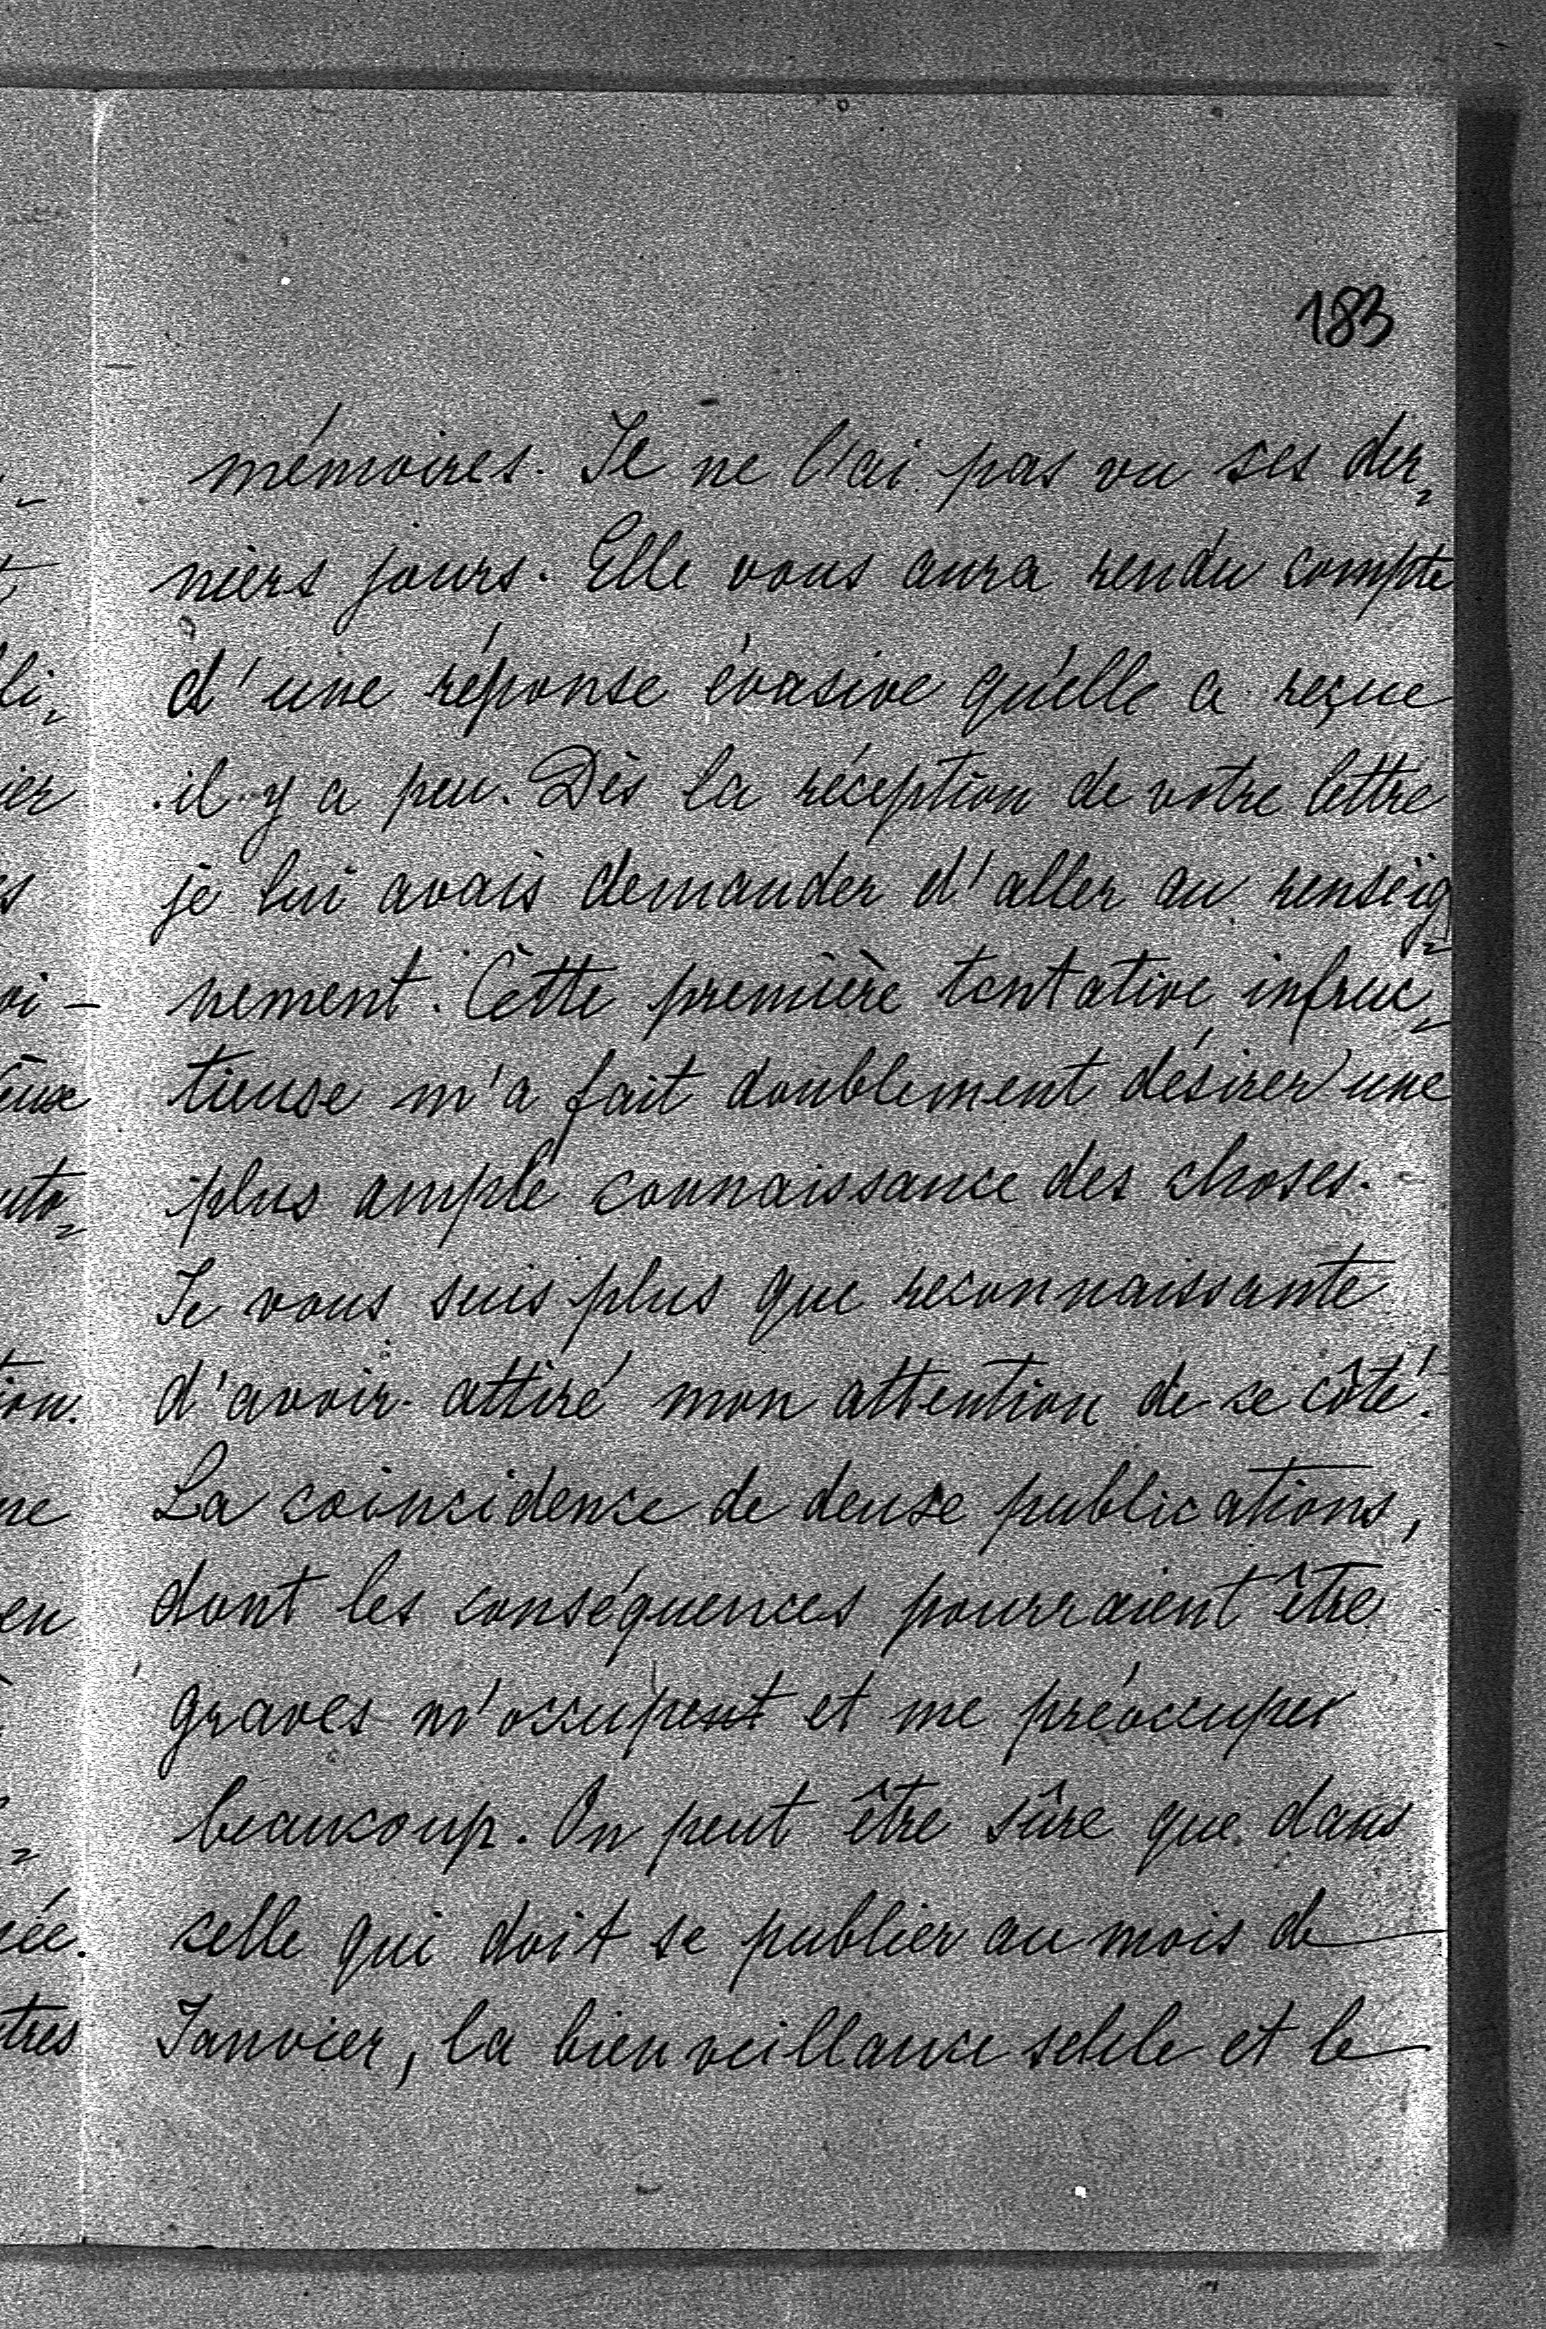 183
mémoires. Je ne l'ai pas vu ses der„
niers jours. Elle vous aura rendu compte
d'une réponse évasive qu'elle a reçue
il y a peu. Dès la réception de votre lettre
je lui avais demander d'aller au renseig„
nement. Cette première tentative infruc„
tieuse m'a fait doublement désirer une
plus ample connaissance des choses.
Je vous suis plus que reconnaissante
d'avoir attiré mon attention de ce côté.
La coincidence de deuxe publications,
dont les conséquences pourraient être
graves m'occupent et me préoccuper
beaucoup. On peut être sûre que dans
celle qui doit se publier au mois de
Janvier, la bienveillance et le